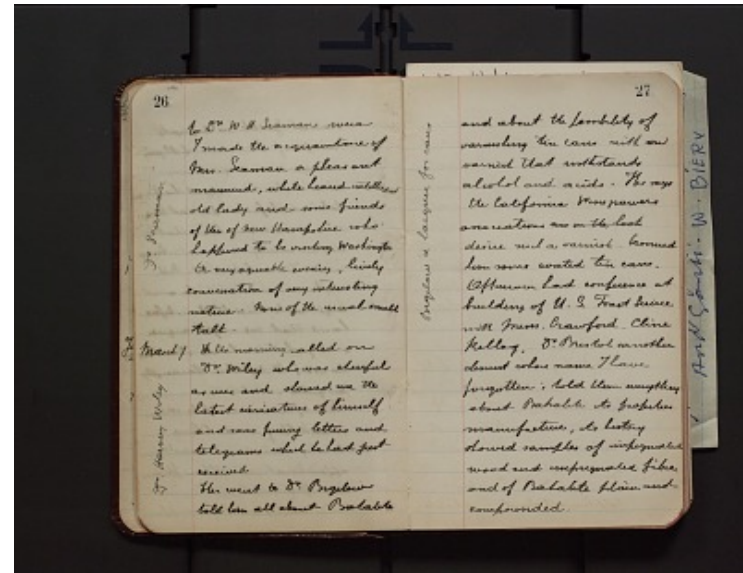 26
to Dr. W. H. Seaman where
I made the acquaintance of
Mrs. Seaman a pleasant
mannered, white haired
old lady and some friends
of the of New Hampshire who
happened to be visiting Washington
evening, lively
conversation of very interesting
nature. None of the usual small
talk
March 1 In the morning called on
Dr. Wiley who was cheerful
as ever and showed me the
latest caricatures of himself
and some funny letters and
telegrams which he had just
received
went to Dr. Bigelow
told him all about Bakalite
Dr Seaman
Dr Harvey Wiley
27
and about the possibility of
varnishing tin cans with our
varnish that withstands
alcohol and acids. He says
the California Winegrowers
associations are on the look
such a varnish.
him some coated tin cans.
Afternoon had conference at
building of U. S. Forest Service
with Messrs. Crawford Cline
Kellog, Dr. Bristol another
chemist whose name I have
forgotten; told them everything
about Bakalite its properties
manufacture, its history
showed samples of impregnated
wood and impregnated fibre
and of Bakalite plain and
compounded.
Bigelow & lacquer for cans
W. BIERY